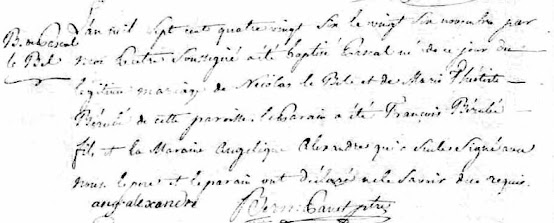 B. m. Pascal
le Bel
L'an mil sept cent quatre vingt six le vingt six novembre par
moi Prêtre Soussigné a été baptisé Pascal né de ce jour du
légitime mariage de Nicolas le Bel et de Marie
Bérubé de cette paroisse. le Parain a été Francois Bérubé
fils et la Maraine Angelique Alexandre qui seule a Signé avec
nous le pere et le parain ont déclaré ne le savoir de ce requis.
ang alexandre ptre